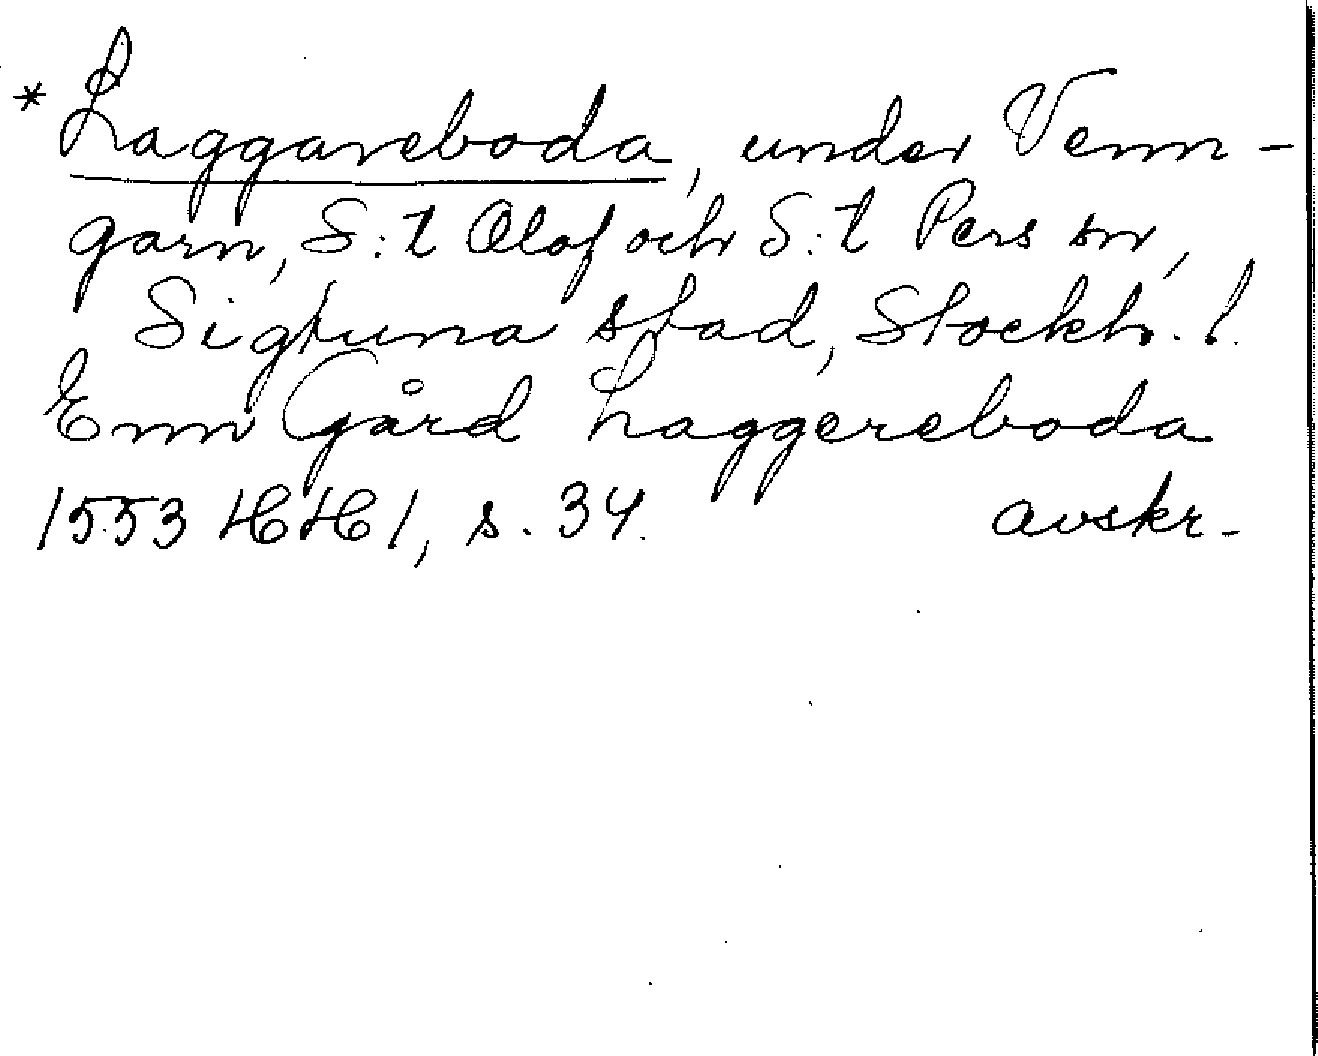 * Laggareboda, under Venn-
garn, S:t Olof och S:t Pers sn,
Sigtuna stad, Stockh. l.
Enn Gård Laggereboda
1553 HH 1, s. 34. avskr.